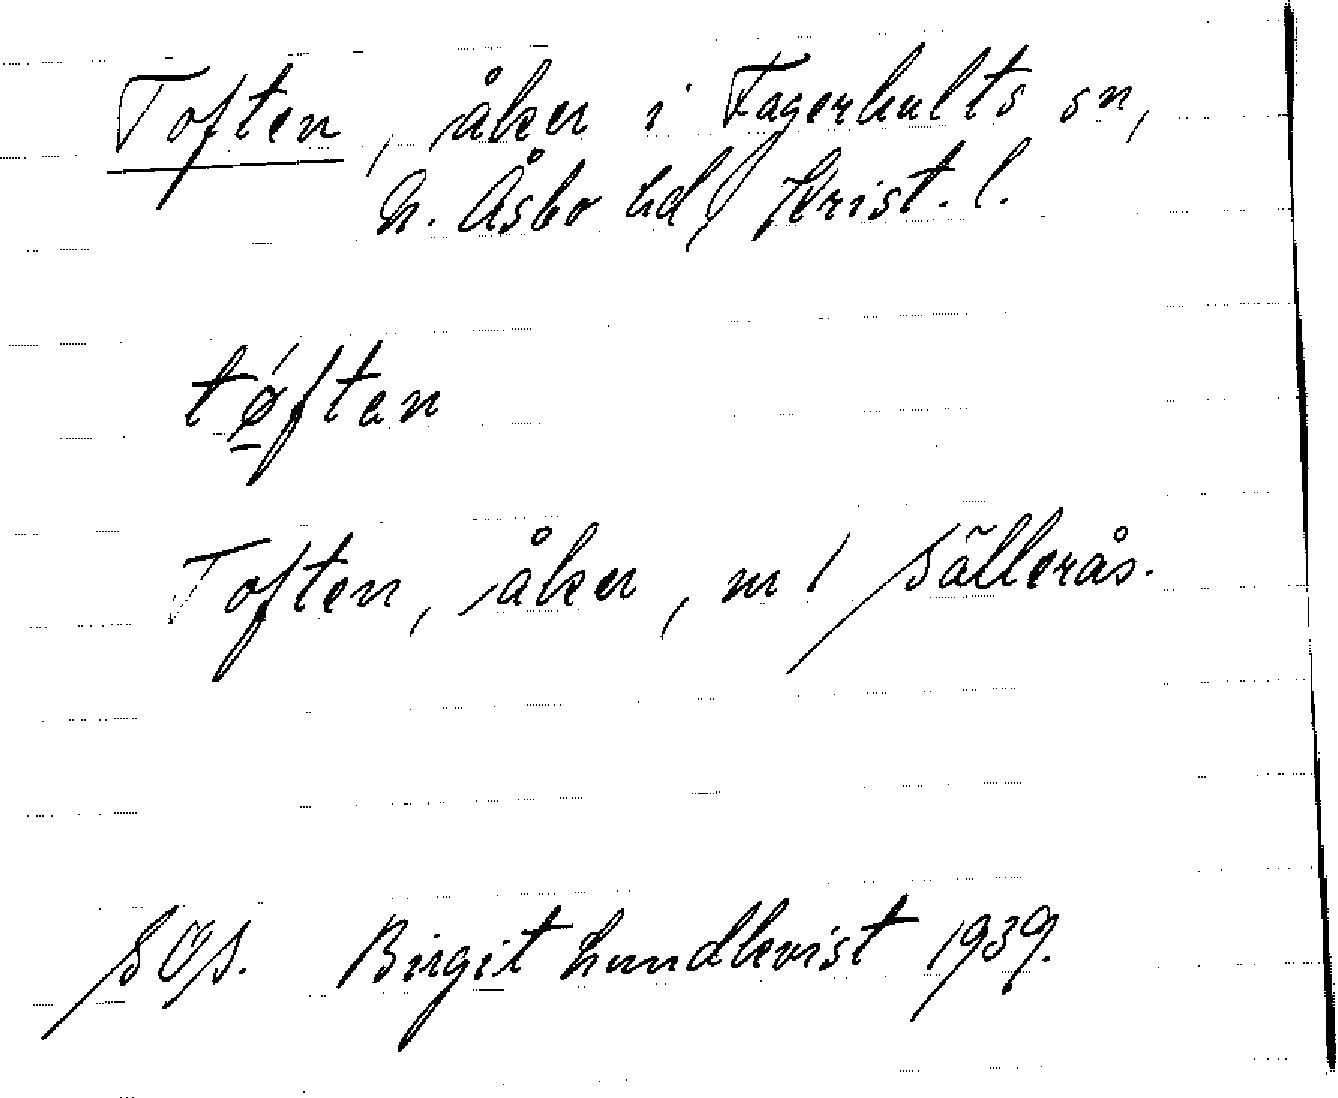 Toften, åker i Fagerhults sn,
N. Åsbo hd, Krist. l.
tøften
Toften, åker, m / Sällerås.
SOS. Birgit Lundkvist 1939.